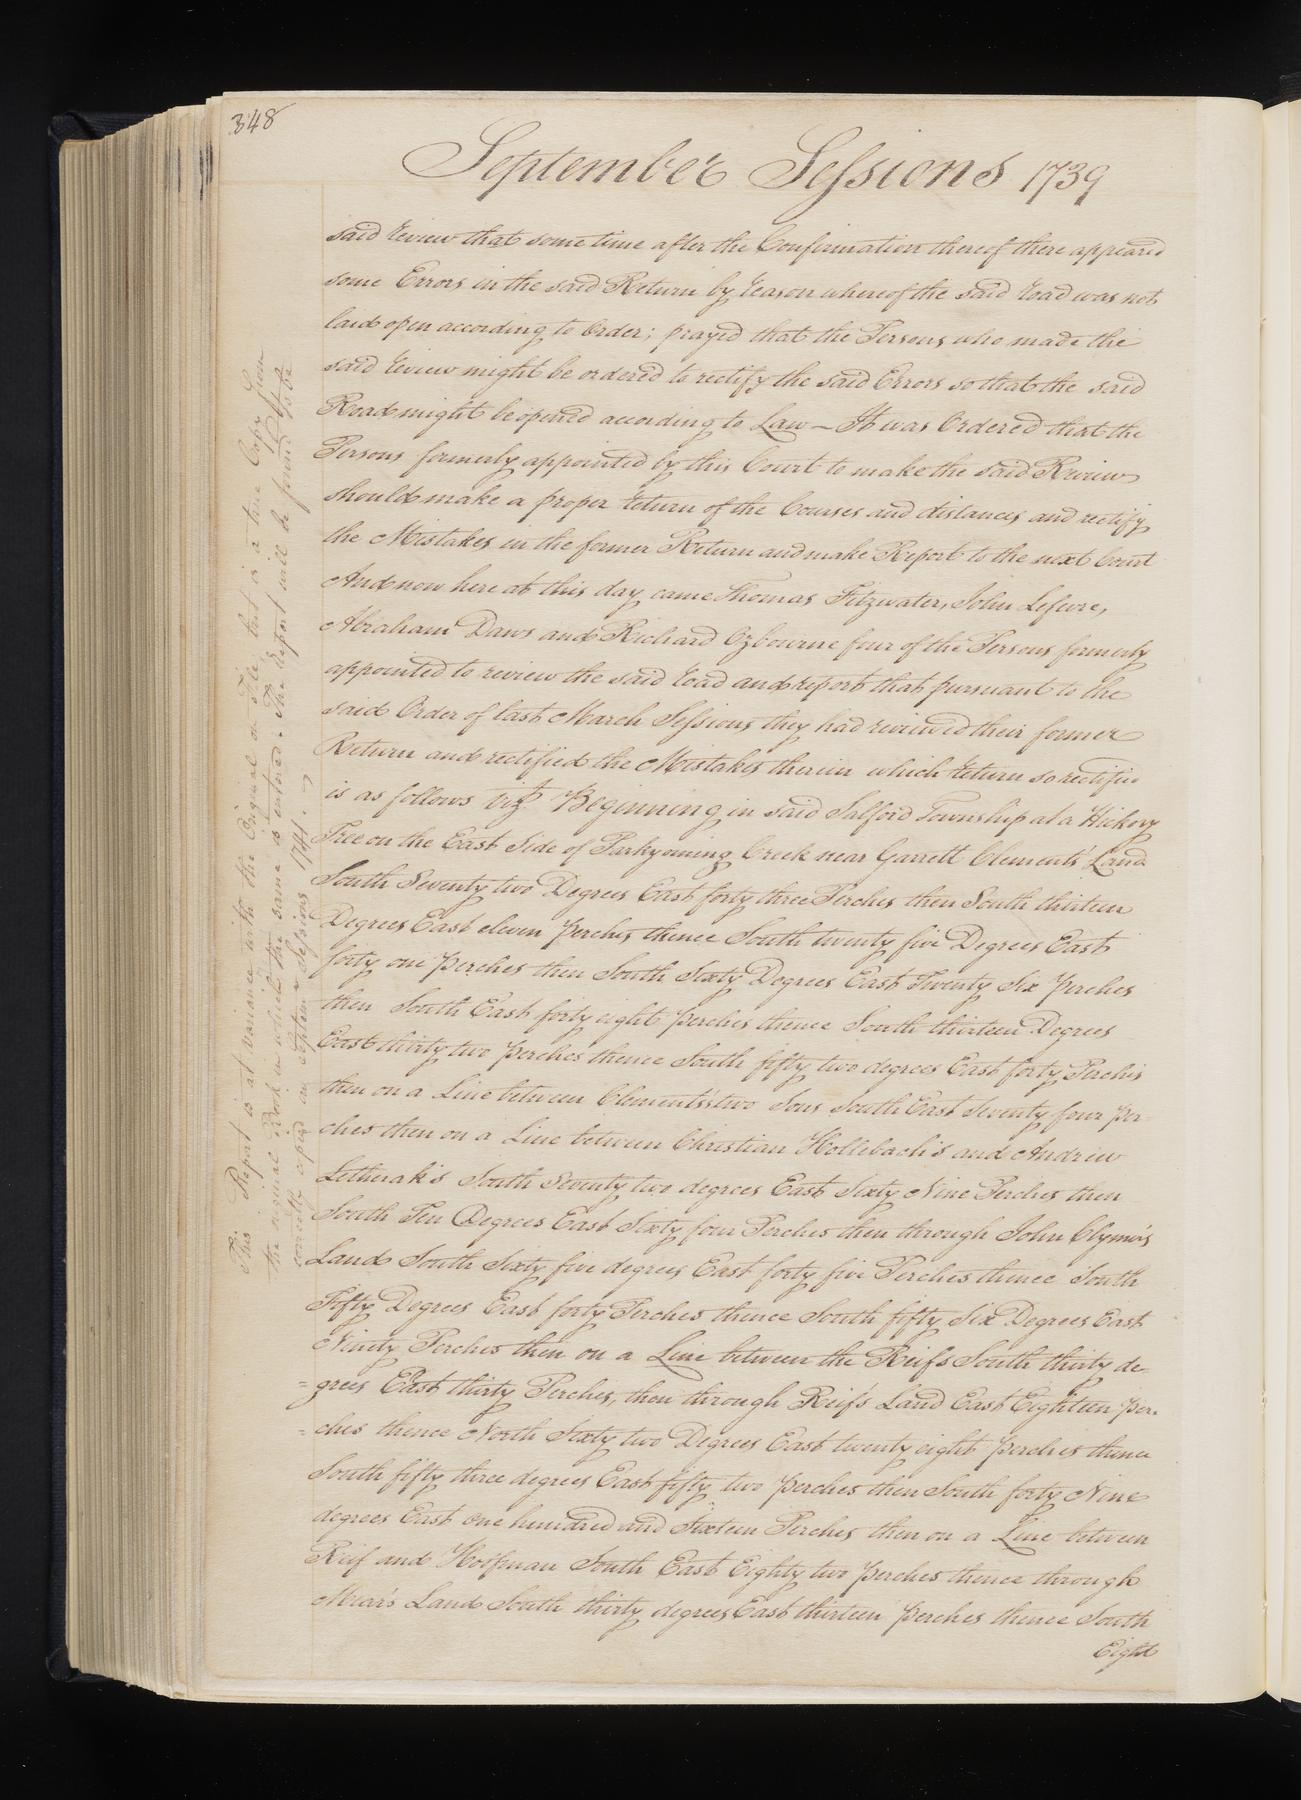 348
September Sessions 1739
said review that some time after the Confirmation thereof there appeared
some Errors in the said Return by reason whereof the said road was not
laid open according to Order; prayed that the Persons who made the
said review might be ordered to rectify the said Errors so that the said
Road might be opened according to Law — It was Ordered that the
Persons formerly appointed by this Court to make the said Review
should make a proper return of the Courses and distances and rectify
the Mistakes in the former Return and make Report to the next Court
And now here at this day came Thomas Fitzwater, John Lefevre,
Abraham Daws and Richard Ozbourne four of the Persons formerly
appointed to review the said road and report that pursuant to the
said Order of last March Sessions they had reviewed their former
Return and rectified the Mistakes therein which return so rectified
is as follows Vizt Beginning in said Salford Township at a Hickory
Tree on the East Side of Parkyoming Creek near Garrett Clements' Land
South Seventy two Degrees East forty three Perches then South thirteen
Degrees East eleven perches thence South twenty five Degrees East
forty one perches then South Sixty Degrees East Twenty Six perches
then South East forty eight perches thence South thirteen Degrees
East thirty two perches thence South fifty two degrees East forty Perches
then on a Line between Clements's two Sons South East Seventy four per-
ches then on a Line between Christian Hollebach's and Andrew
Letherak's South Seventy two degrees East Sixty Nine Perches then
South Ten Degrees East Sixty four Perches then through John Clymer's
Land South Sixty five degrees East forty five Perches thence South
Fifty Degrees East forty Perches thence South fifty Six Degrees East
Ninety Perches then on a Line between the Reifs South thirty de-
=grees East thirty Perches, then through Reif's Land East Eighteen per-
=ches thence North Sixty two Degrees East twenty eight perches thence
South fifty three degrees East fifty two perches then South forty Nine
degrees East one hundred and Sixteen Perches then on a Line between
Reif and Hoffman South East Eighty two perches thence through
Mear's Land South thirty degrees East thirteen perches thence South
Eight
This Report is at variance with the Original on File, but is a true Copy from
the original Book in which the same is entered. The Report will be found to be
correctly copied in September Sessions 1741.